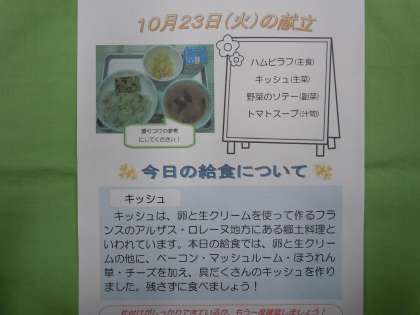 10月23日(火)の献立
ハムピラフ(主食)
キッシュ(主菜)
野菜のソテー(副菜)
トマトスープ(汁物)
盛りつけの参考
にしてください!
今日の給食について
キッシュ
キッシュは、卵と生クリームを使って作るフラ
ンスのアルザス・ロレーヌ地方にある郷土料理と
いわれています。本日の給食では、卵と生クリー
ムの他に、ベーコン・マッシュルーム・ほうれん
草・チーズを加え、具だくさんのキッシュを作り
ました。残さずに食べましょう!
片付けがしっかりできているか、もう一度確認しましょう!